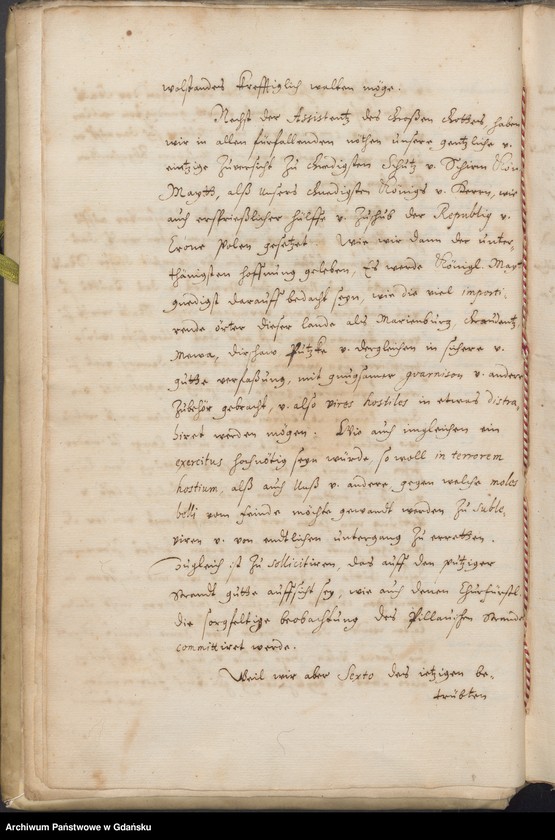 wolstandes krefftiglich walten möge.
Nechst der Assistentz des Großen Gottes haben
wir in allen fürfallenden nöthen unsere gentzliche v.
eintzige Zuversicht zu Gnädigsten Schutz v. Schirm Kön.
Maytt, alß unsers Gnedigsten Königs v. Herrn, wie
auch ersprießlicher hülffe v. Zuschub der Republiq v.
Crone Polen gesetzet. Wie wir dann der unter,
thänigsten hoffnung geleben, Es werde Königl. Maytt
gnedigst darauff bedacht seyn, wie die viel importi,
rende örter dieser lande als Marienburg, Graudentz,
Mewa, Dirschaw Putzke v. dergleichen in sichere v.
gutte verfaßung, mit gnugsamer guarnison v. andere
Zubehör gebracht, v. also vires hostiles in etwas distra,
hiret werden mögen. Wie auch imgleichen ein
exercitus hochnötig seyn würde, so woll in terrorem
hostium, alß auch Unß v. andere, gegen welche moles
belli vom Feinde möchte gewandt werden zu suble,
viren v. von endtlichen untergang zu erretten.
Zugleich ist zu sollicitiren, das auff den putziger
Strandt gutte auffsicht sey, wie auch denen Churfürstl.
die sorgfeltige beobachtung des Pillauischen Strandes
committiret werde.
Weil wir aber Sexto des ietzigen be,
trübten